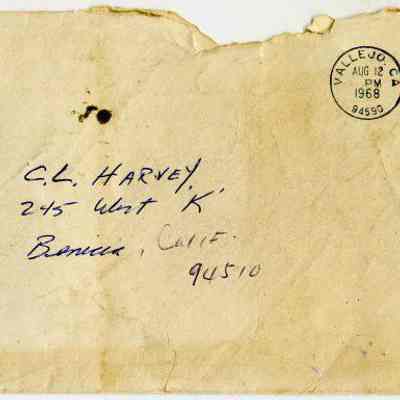 VALLEJO, CA
AUG 12
PM
1968
94590
C.L. HARVEY,
245 West 'K'
Benicia, Calif.
94510